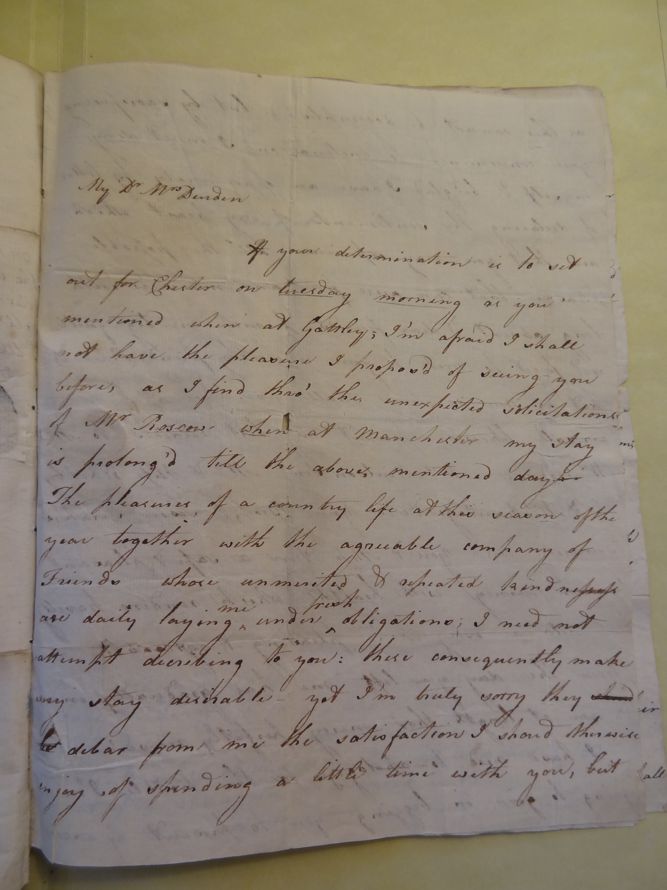 My Dr. Mrs Durden
If your determination is to set
out for Chester on tuesday morning as you
mentioned when at Gattley; I'm afraid I shall
not have the pleasure I propos'd of seeing you
before, as I find thro' the unexpected solicitations
of Mr Roscow when at Manchester my stay
is prolong'd till the above mentioned day.
The pleasures of a country life at this season of the
year together with the agreeable company of
Friends whose unmerited & repeated kindnesses
are daily laying me under fresh obligations; I need not
attempt decribing to you: these consequently make
my stay desirable yet I'm truly sorry they
debar from me the satisfaction I shoud otherwise
enjoy of spending a little time with you, but